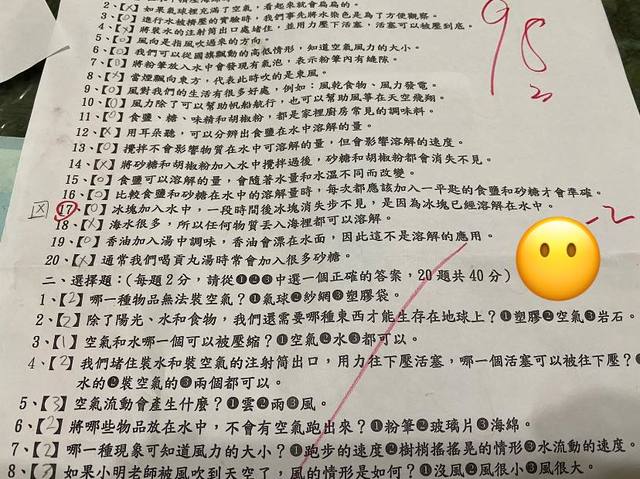 2、【X】如果氣球裡充滿了空氣，看起來就會扁扁的。
3、【O】進行水被擠壓的實驗時，我們事先將水染色是為了方便觀察。
4、【X】將裝水的注射筒出口處堵住，並用力壓下活塞，活塞可以被壓到底。
5、【O】風向是指風吹過來的方向。
6、【O】我們可以從國旗飄動的高低情形，知道空氣風力的大小。
7、【O】將粉筆放入水中會發現有氣泡，表示粉筆內有縫隙。
8、【X】當煙飄向東方，代表此時吹的是東風。
9、【O】風對我們的生活有很多好處，例如：風乾食物、風力發電。
10、【O】風力除了可以幫助帆船航行，也可以幫助風箏在天空飛翔。
11、【O】食鹽、糖、味精和胡椒粉，都是家裡廚房常見的調味料。
12、【X】用耳朵聽，可以分辨出食鹽在水中溶解的量。
13、【O】攪拌不會影響物質在水中可溶解的量，但會影響溶解的速度。
14、【X】將砂糖和胡椒粉加入水中攪拌過後，砂糖和胡椒粉都會消失不見。
15、【O】食鹽可以溶解的量，會隨著水量和水溫不同而改變。
16、【O】比較食鹽和砂糖在水中的溶解量時，每次都應該加入一平匙的食鹽和砂糖才會準確。
X 17、【O】冰塊加入水中，一段時間後冰塊消失步不見，是因為冰塊已經溶解在水中。
18、【X】海水很多，所以任何物質丟入海裡都可以溶解。
19、【O】香油加入湯中調味，香油會漂在水面，因此這不是溶解的應用。
20、【X】通常我們喝貢丸湯時常會加入很多砂糖。
二、選擇題：(每題2分，請從❶❷❸中選一個正確的答案，20題共40分)
1、【2】哪一種物品無法裝空氣？❶氣球❷紗網❸塑膠袋。
2、【2】除了陽光、水和食物，我們還需要哪種東西才能生存在地球上？❶塑膠❷空氣❸岩石。
3、【1】空氣和水哪一個可以被壓縮？❶空氣❷水❸都可以。
4、【2】我們堵住裝水和裝空氣的注射筒出口，用力往下壓活塞，哪一個活塞可以被往下壓？❶
水的❷裝空氣的❸兩個都可以。
5、【3】空氣流動會產生什麼？❶雲❷雨❸風。
6、【2】將哪些物品放在水中，不會有空氣跑出來？❶粉筆❷玻璃片❸海綿。
7、【2】哪一種現象可知道風力的大小？❶跑步的速度❷樹梢搖搖晃的情形❸水流動的速度。
8、【3】如果小明老師被風吹到天空了，風的情形是如何？❶沒風❷風很小❸風很大。
98
-2